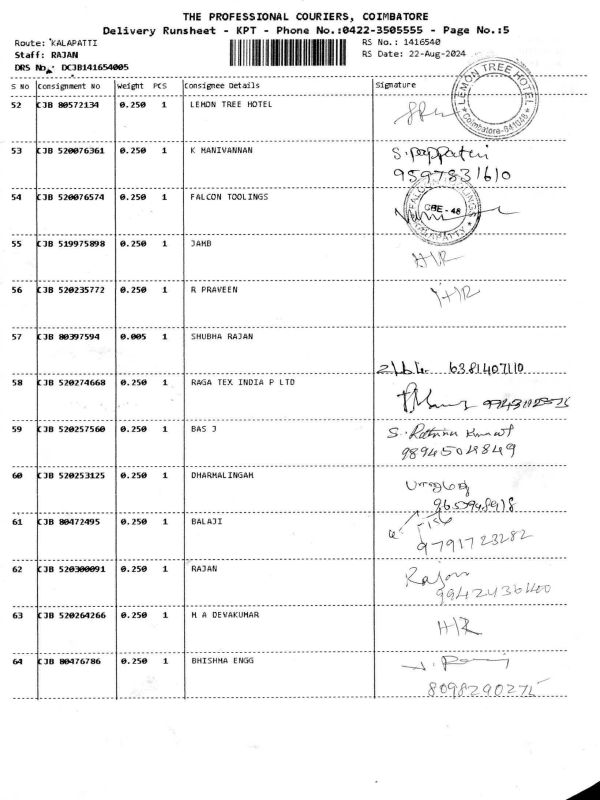 THE PROFESSIONAL COURIERS, COIMBATORE
Delivery Runsheet - KPT - Phone No.:0422-3505555 - Page No.:5
Route: KALAPATTI RS No.: 1416540
Staff: RAJAN RS Date: 22-Aug-2024
DRS No. DCJB141654005
S No Consignment No Weight PCS Consignee Details Signature
52 CJB 80572134 0.250 1 LEMON TREE HOTEL
LEMON TREE HOTEL
Coimbatore-641048
53 CJB 520076361 0.250 1 K MANIVANNAN
9597831610
54 CJB 520076574 0.250 1 FALCON TOOLINGS
CBE - 48
55 CJB 519975898 0.250 1 JAMB H/R
56 CJB 520235772 0.250 1 R PRAVEEN H/R
57 CJB 80397594 0.005 1 SHUBHA RAJAN
6381407110
58 CJB 520274668 0.250 1 RAGA TEX INDIA P LTD
59 CJB 520257560 0.250 1 BAS J
9894504849
60 CJB 520253125 0.250 1 DHARMALINGAM
61 CJB 80472495 0.250 1 BALAJI
9791723282
62 CJB 520300091 0.250 1 RAJAN Rajan
9942436400
63 CJB 520264266 0.250 1 M A DEVAKUMAR H/R
64 CJB 80476786 0.250 1 BHISHMA ENGG
8098290275